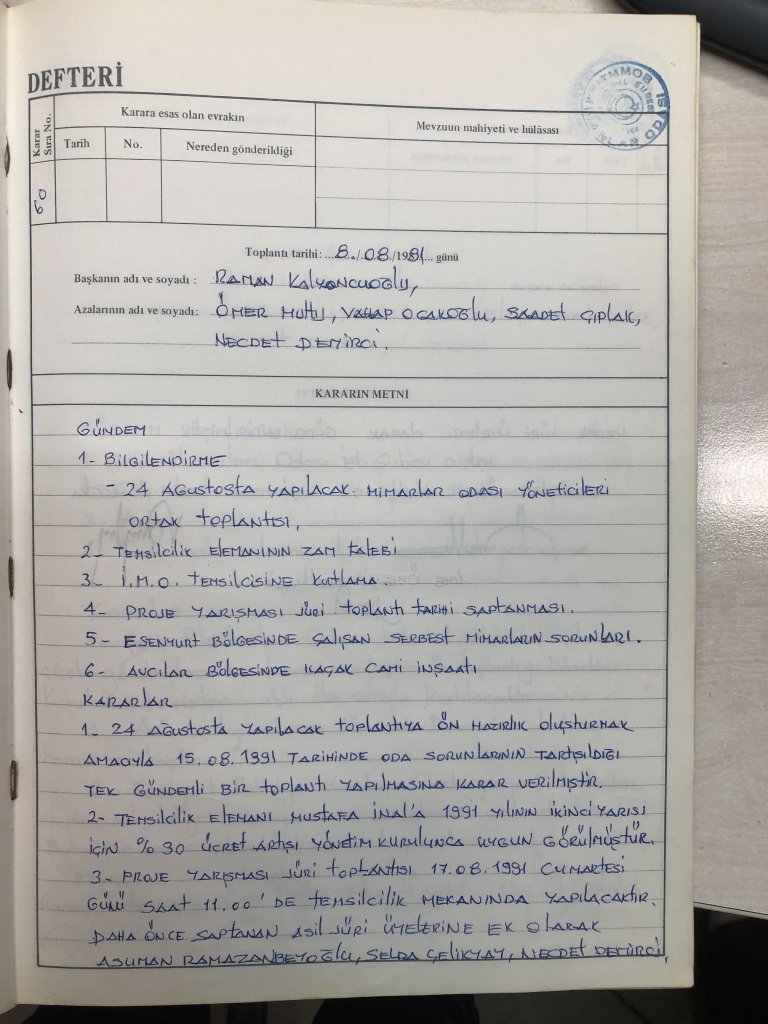 DEFTERİ
TMMOB
Karar Sıra No.
Karara esas olan evrakın
Mevzuun mahiyeti ve hülâsası
Tarih
No.
Nereden gönderildiği
60
Toplantı tarihi: ...8../.08./1991... günü
Başkanın adı ve soyadı : RAMAN KALYONCUOĞLU,
Azalarının adı ve soyadı: ÖMER MUTLU, VAHAP OCAKOĞLU, SAADET ÇIPLAK,
NECDET DEMİRCİ.
KARARIN METNİ
GÜNDEM
1- BİLGİLENDİRME
- 24 AĞUSTOSTA YAPILACAK MİMARLAR ODASI YÖNETİCİLERİ
ORTAK TOPLANTISI,
2- TEMSİLCİLİK ELEMANININ ZAM TALEBİ
3- İ.M.O. TEMSİLCİSİNE KUTLAMA.
4- PROJE YARIŞMASI JÜRİ TOPLANTI TARİHİ SAPTANMASI.
5- ESENYURT BÖLGESİNDE ÇALIŞAN SERBEST MİMARLARIN SORUNLARI.
6- AVCILAR BÖLGESİNDE KAÇAK CAMİ İNŞAATI
KARARLAR
1- 24 AĞUSTOSTA YAPILACAK TOPLANTIYA ÖN HAZIRLIK OLUŞTURMAK
AMACIYLA 15.08.1991 TARİHİNDE ODA SORUNLARININ TARTIŞILDIĞI
TEK GÜNDEMLİ BİR TOPLANTI YAPILMASINA KARAR VERİLMİŞTİR.
2- TEMSİLCİLİK ELEMANI MUSTAFA İNAL'A 1991 YILININ İKİNCİ YARISI
İÇİN % 30 ÜCRET ARTIŞI YÖNETİM KURULUNCA UYGUN GÖRÜLMÜŞTÜR.
3- PROJE YARIŞMASI JÜRİ TOPLANTISI 17.08.1991 CUMARTESİ
GÜNÜ SAAT 11.00'DE TEMSİLCİLİK MEKANINDA YAPILACAKTIR.
DAHA ÖNCE SAPTANAN ASİL JÜRİ ÜYELERİNE EK OLARAK
ASUMAN RAMAZANBEYOĞLU, SELDA ÇELİKYAY, NECDET DEMİRCİ,